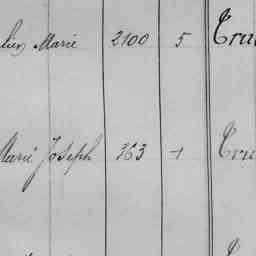 Marie 2100 5 Tru
Marie Joseph 363 1 Tru